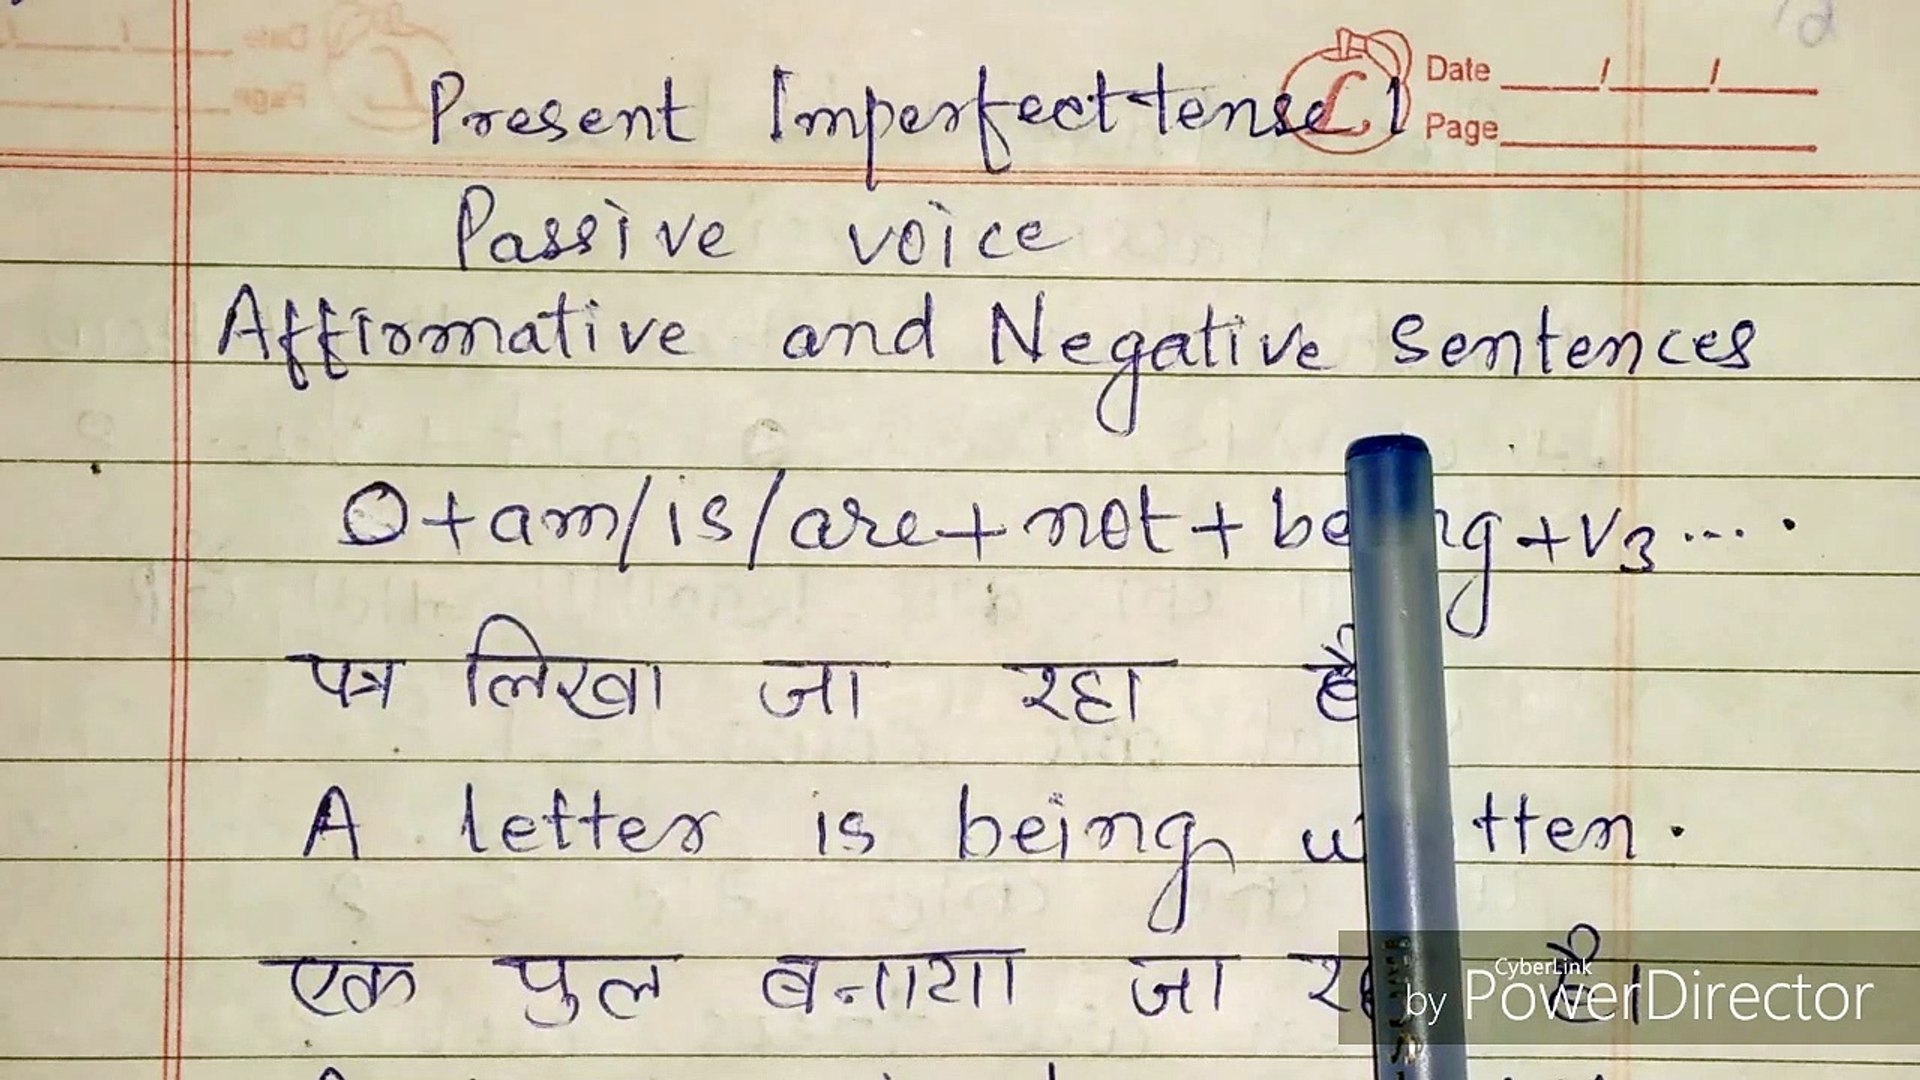 Present Imperfect tense
Date / /
Page
Passive voice
Affirmative and Negative Sentences
O+am/is/are+not+being+V3....
पत्र लिखा जा रहा है
A letter is being written.
एक पुल बनाया जा रहा है।
CyberLink
by PowerDirector